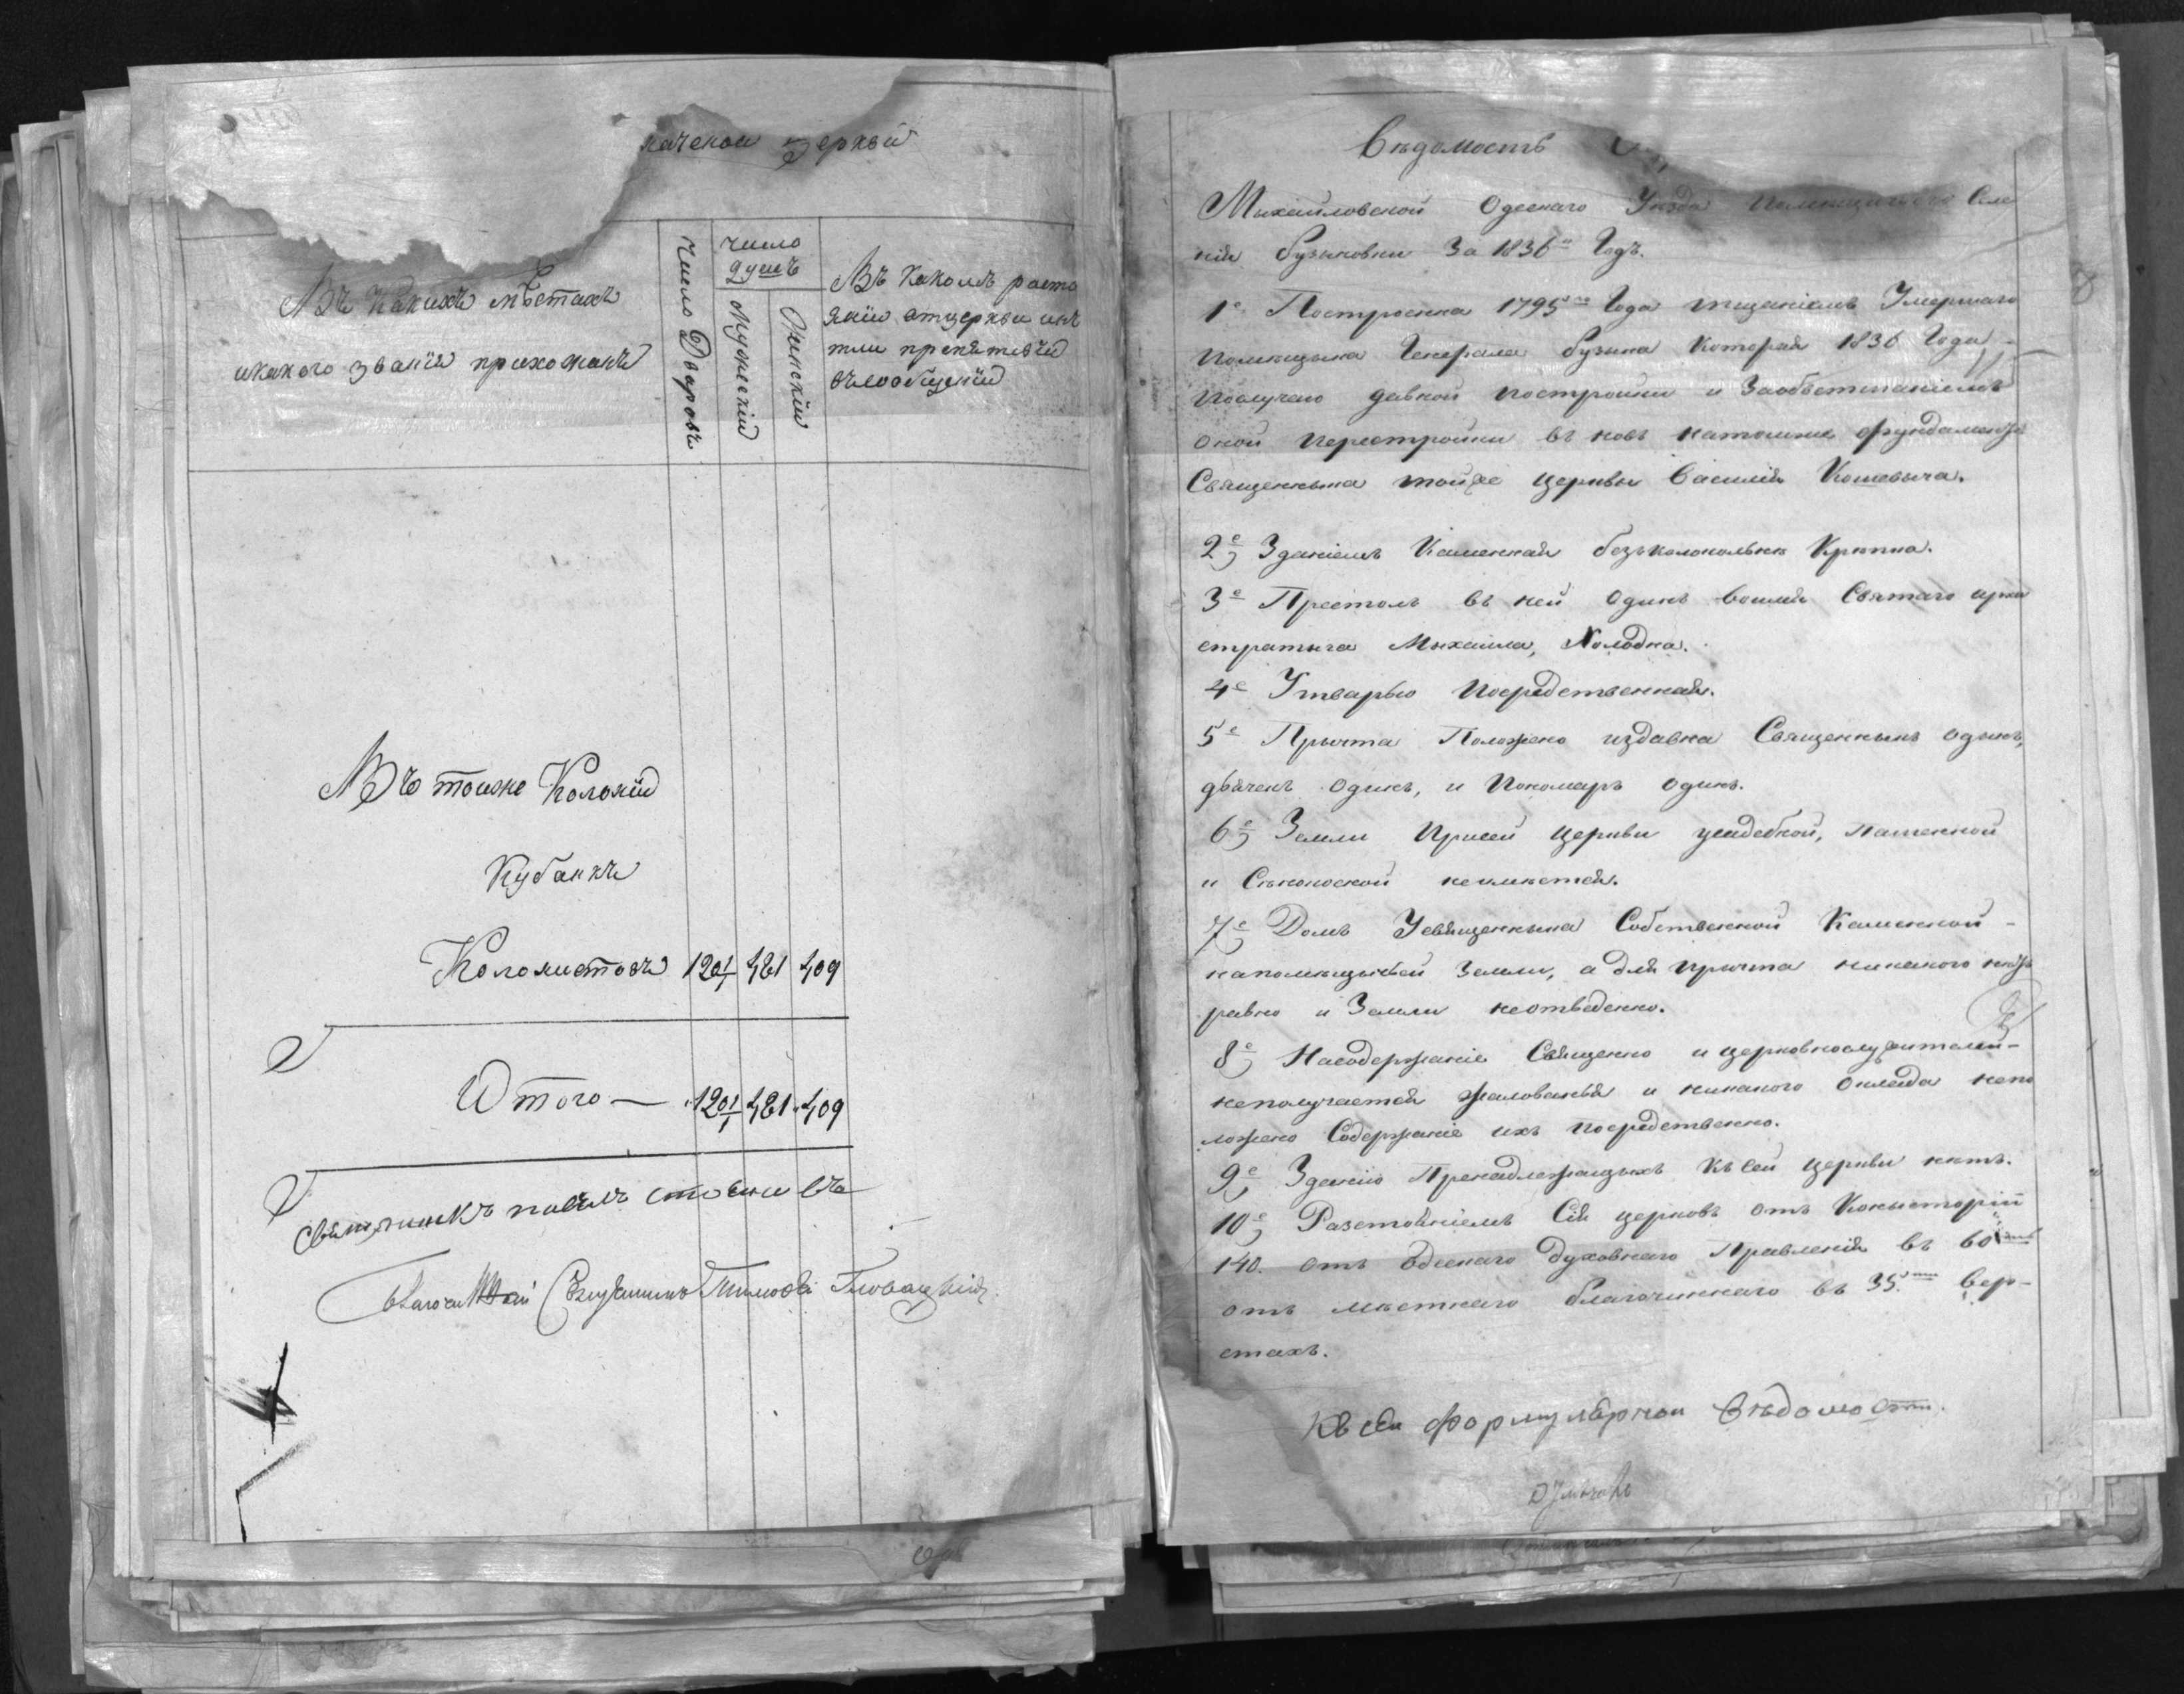 церкви
Въ какихъ мѣстахъ
икакого званія прихожанъ
Число Дворовъ
число
душъ
Мужескій
Женскій
Въ какомъ разсто
яніи отцеркви инѣ
тли препятствій
въсообщеніи
Въ тоиже Колоніи
Кубанкъ
Колонистовъ 120½ 481 409
Итого — 120½ 481 409
Священникъ
Священникъ Тимофей Гловацкій
Вѣдомость
Михаиловской Одескаго Уѣзда Селе
нія Бузиновки За 1836й Годъ.
1е Построенна 1795го Года тщаніемъ Умершаго
помѣщыка Генерала Бузына Которая 1836 Года
давной постройки и Заобветшаніемъ
оной перестройки въ новъ натомже фундаментѣ
Священныка тойже церквы Василія Кошевыча.
2е Зданіемъ Каменная безъколокольнѣ Крѣпка.
3е Престолъ въ ней Одинъ воимя Святаго архи
стратыга Мыхаила, Холодна.
4е Утварью Посредственная.
5е Прычта Положено издавна Священныкъ одынъ,
дьячекъ Одинъ, и Пономаръ одинъ.
6е Земли Присей Церкви усадебной, пашенной
и Сѣнокосной неимѣется.
7е Домъ Усвященныка Собственной Каменной -
напомѣщычей Земли, а для Причта никакого нѣтъ
равно и Земли неотведенно.
8е Насодержаніе Священно и церковнослужителей -
неполучается жалованья и никакого Оклада непо
ложено Содержаніе ихъ посредственно.
9е Зданію Пренадлежащыхъ Къ сей церкви нѣтъ.
10е Разстояніемъ Сія церковь отъ Консысторіи
140. отъ Одескаго Духовнаго Правленія въ 60ть
отъ мѣстнаго благочиннаго въ 35ти вер-
стахъ.
Къ сей формулярной Вѣдомости